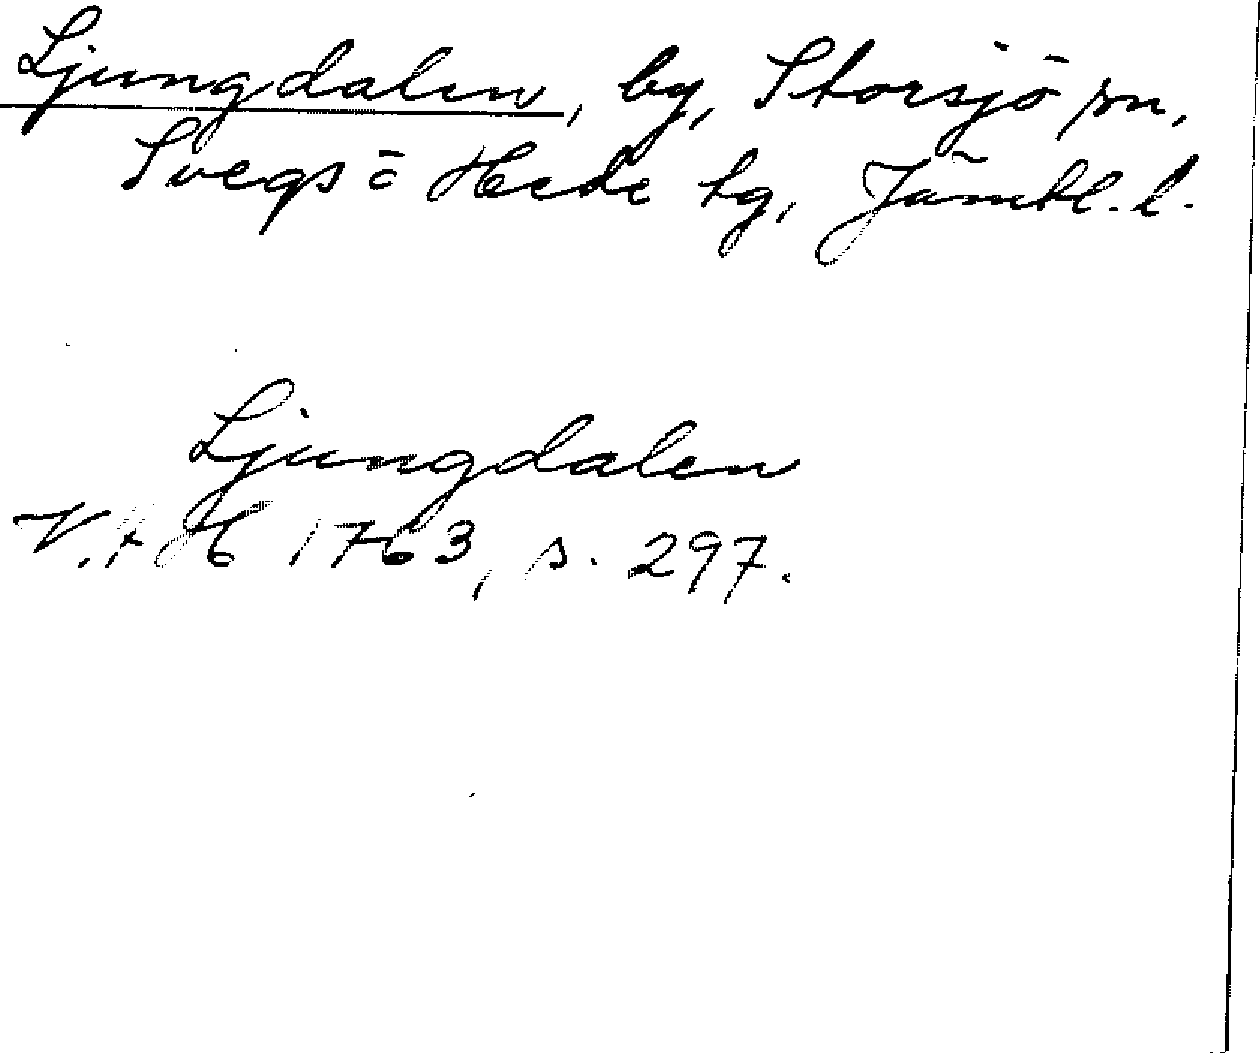 Ljungdalen, by, Storsjö sn,
Svegs o Hede tg, Jämtl. l.
Ljungdalen
1763, s. 297.